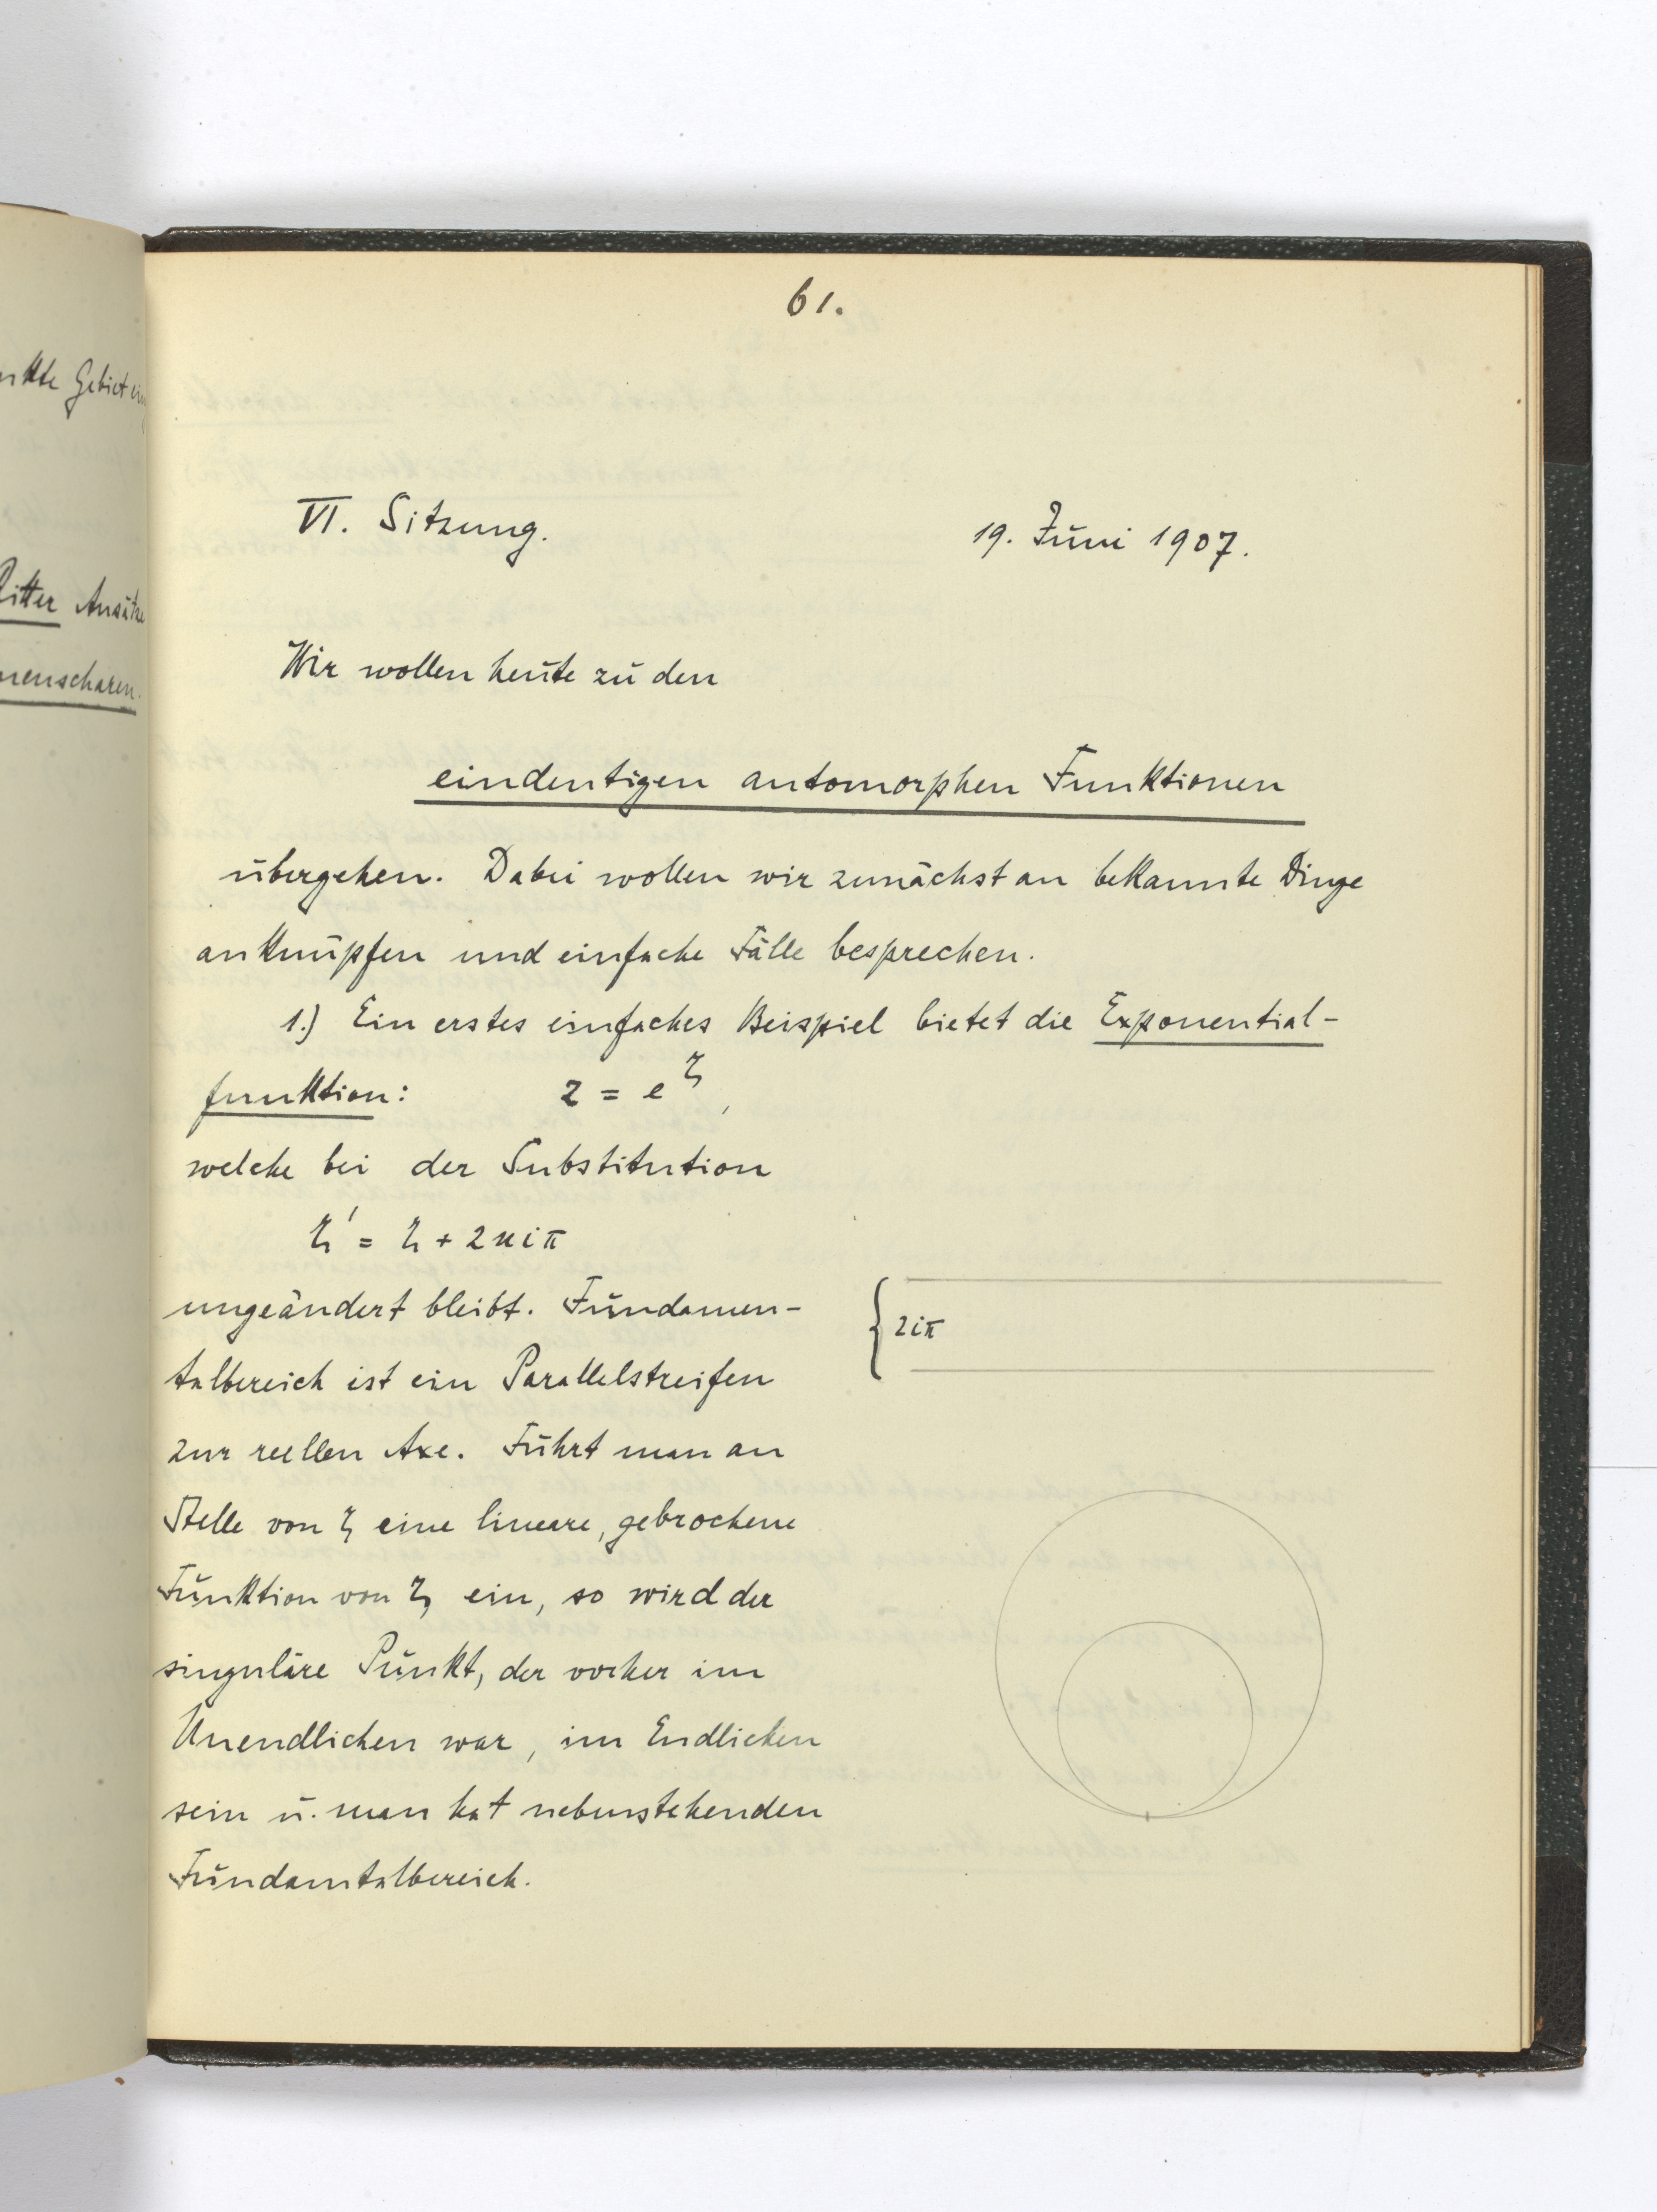 nkte Gebiet
Ritter Ansätze
nenscharen.
61.
VI. Sitzung. 19. Juni 1907.
Wir wollen heute zu den
eindeutigen automorphen Funktionen
übergehen. Dabei wollen wir zunächst an bekannte Dinge
anknüpfen und einfache Fälle besprechen.
1.) Ein erstes einfaches Beispiel bietet die Exponential-
funktion: z = e^ζ,
welche bei der Substitution
ζ' = ζ + 2niπ
ungeändert bleibt. Fundamen-
talbereich ist ein Parallelstreifen
zur reellen Axe. Führt man an
Stelle von ζ eine lineare, gebrochene
Funktion von ζ ein, so wird der
singuläre Punkt, der vorher im
Unendlichen war, im Endlichen
sein u. man hat nebenstehenden
Fundamtalbereich.
2iπ